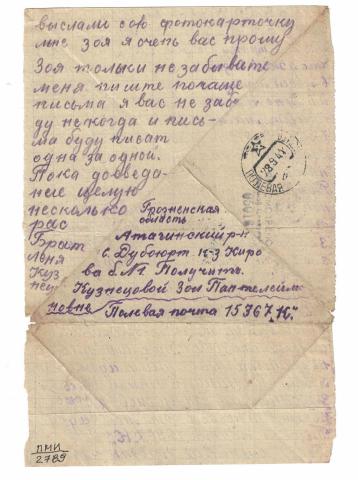 выслали сою фотокарточку
мне зоя я очень вас прошу
Зоя тольки не забывайте
меня пиште почаще
письма я вас не забу
ду некогда и пись-
ма буду писат
одна за одной.
Пока дозведа-
ние целую
несколько
рас
Брат
леня
Куз
нец
Грозненская
область
Атагинский р-н
с. Дубоюрт к-з Киро
ва б. №1 Получить
Кузнецовой Зои Пантелейм
новне
Полевая почта 15367 „К“
28 9 41
ПОЛЕВАЯ
ПМИ
2789